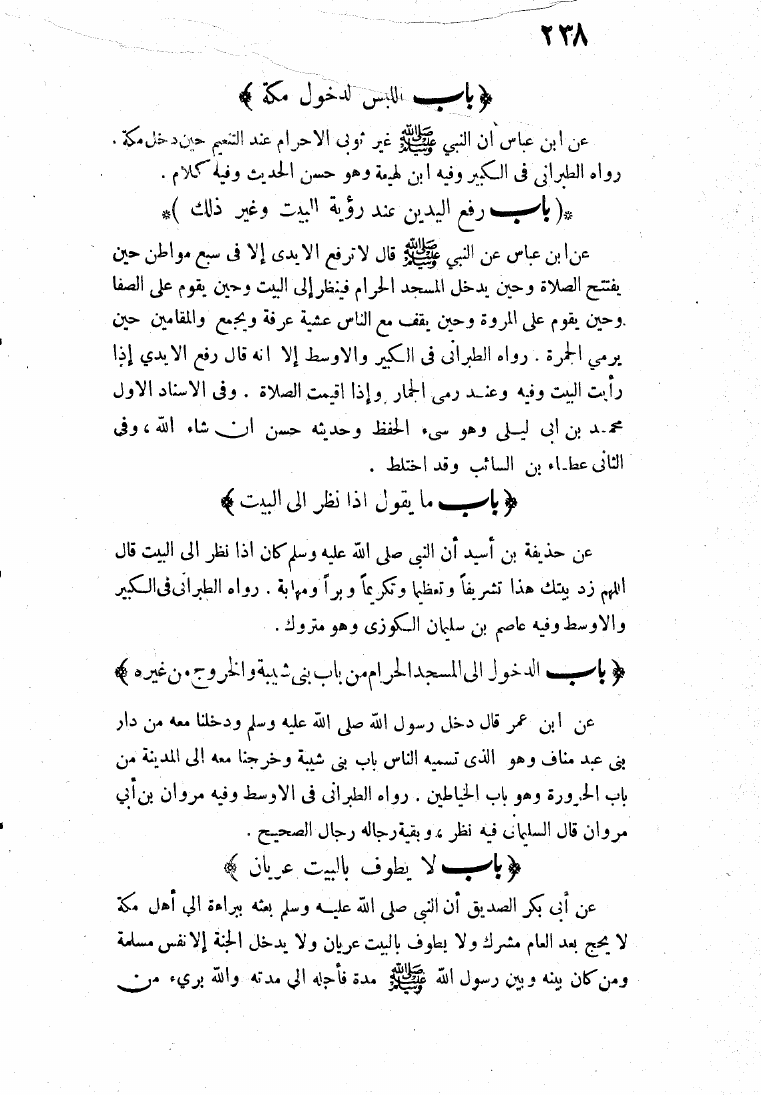 ٢٣٨
﴿ باب اللبس لدخول مكة ﴾
عن ابن عباس أن النبي ﷺ غير ثوبى الاحرام عند التنعيم حين دخل مكة .
رواه الطبرانى فى الكبير وفيه ابن لهيعة وهو حسن الحديث وفيه كلام .
*( باب رفع اليدين عند رؤية البيت وغير ذلك )*
عن ابن عباس عن النبي ﷺ قال لا ترفع الايدى إلا فى سبع مواطن حين
يفتتح الصلاة وحين يدخل المسجد الحرام فينظر إلى البيت وحين يقوم على الصفا
وحين يقوم على المروة وحين يقف مع الناس عشية عرفة وبجمع والمقامين حين
يرمي الجمرة . رواه الطبرانى فى الكبير والاوسط إلا انه قال رفع الايدي إذا
رأيت البيت وفيه وعند رمى الجمار وإذا اقيمت الصلاة . وفى الاسناد الاول
محمد بن ابى ليلى وهو سىء الحفظ وحديثه حسن ان شاء الله ، وفى
الثانى عطاء بن السائب وقد اختلط .
﴿ باب ما يقول اذا نظر الى البيت ﴾
عن حذيفة بن أسيد أن النبى صلى الله عليه وسلم كان اذا نظر الى البيت قال
اللهم زد بيتك هذا تشريفاً وتعظيما وتكريماً وبراً ومهابة . رواه الطبرانى فى الكبير
والاوسط وفيه عاصم بن سليمان الكوزى وهو متروك .
﴿ باب الدخول الى المسجد الحرام من باب بنى شيبة والخروج من غيره ﴾
عن ابن عمر قال دخل رسول الله صلى الله عليه وسلم ودخلنا معه من دار
بنى عبد مناف وهو الذى تسميه الناس باب بنى شيبة وخرجنا معه الى المدينة من
باب الحزورة وهو باب الخياطين . رواه الطبرانى فى الاوسط وفيه مروان بن أبي
مروان قال السليمانى فيه نظر ، وبقية رجاله رجال الصحيح .
﴿ باب لا يطوف بالبيت عريان ﴾
عن أبى بكر الصديق أن النبى صلى الله عليه وسلم بعثه ببراءة الى أهل مكة
لا يحج بعد العام مشرك ولا يطوف بالبيت عريان ولا يدخل الجنة إلا نفس مسلمة
ومن كان بينه وبين رسول الله ﷺ مدة فأجله الى مدته والله بريء من